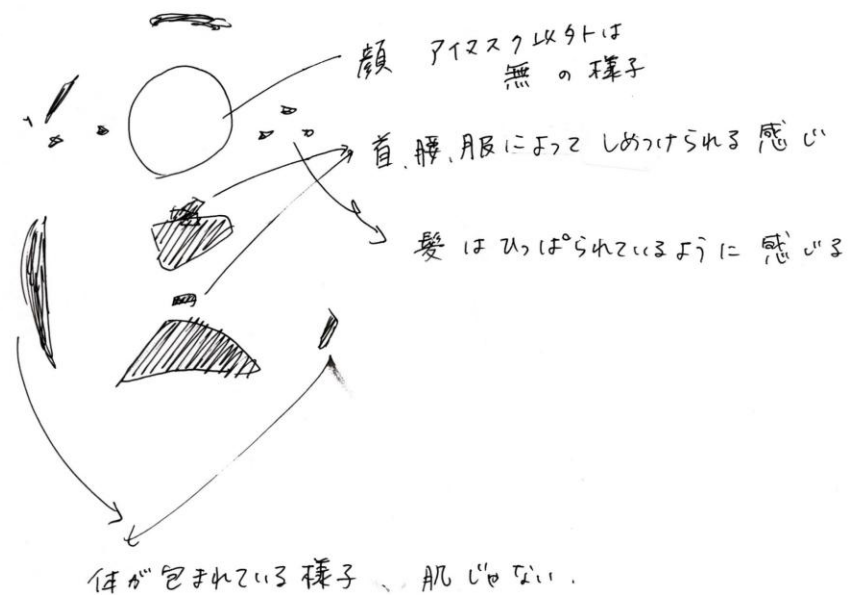 顔 アイマスク以外は
無の様子
首、腰、服によってしめつけられる感じ
髪はひっぱられているように感じる
体が包まれている様子、肌じゃない.